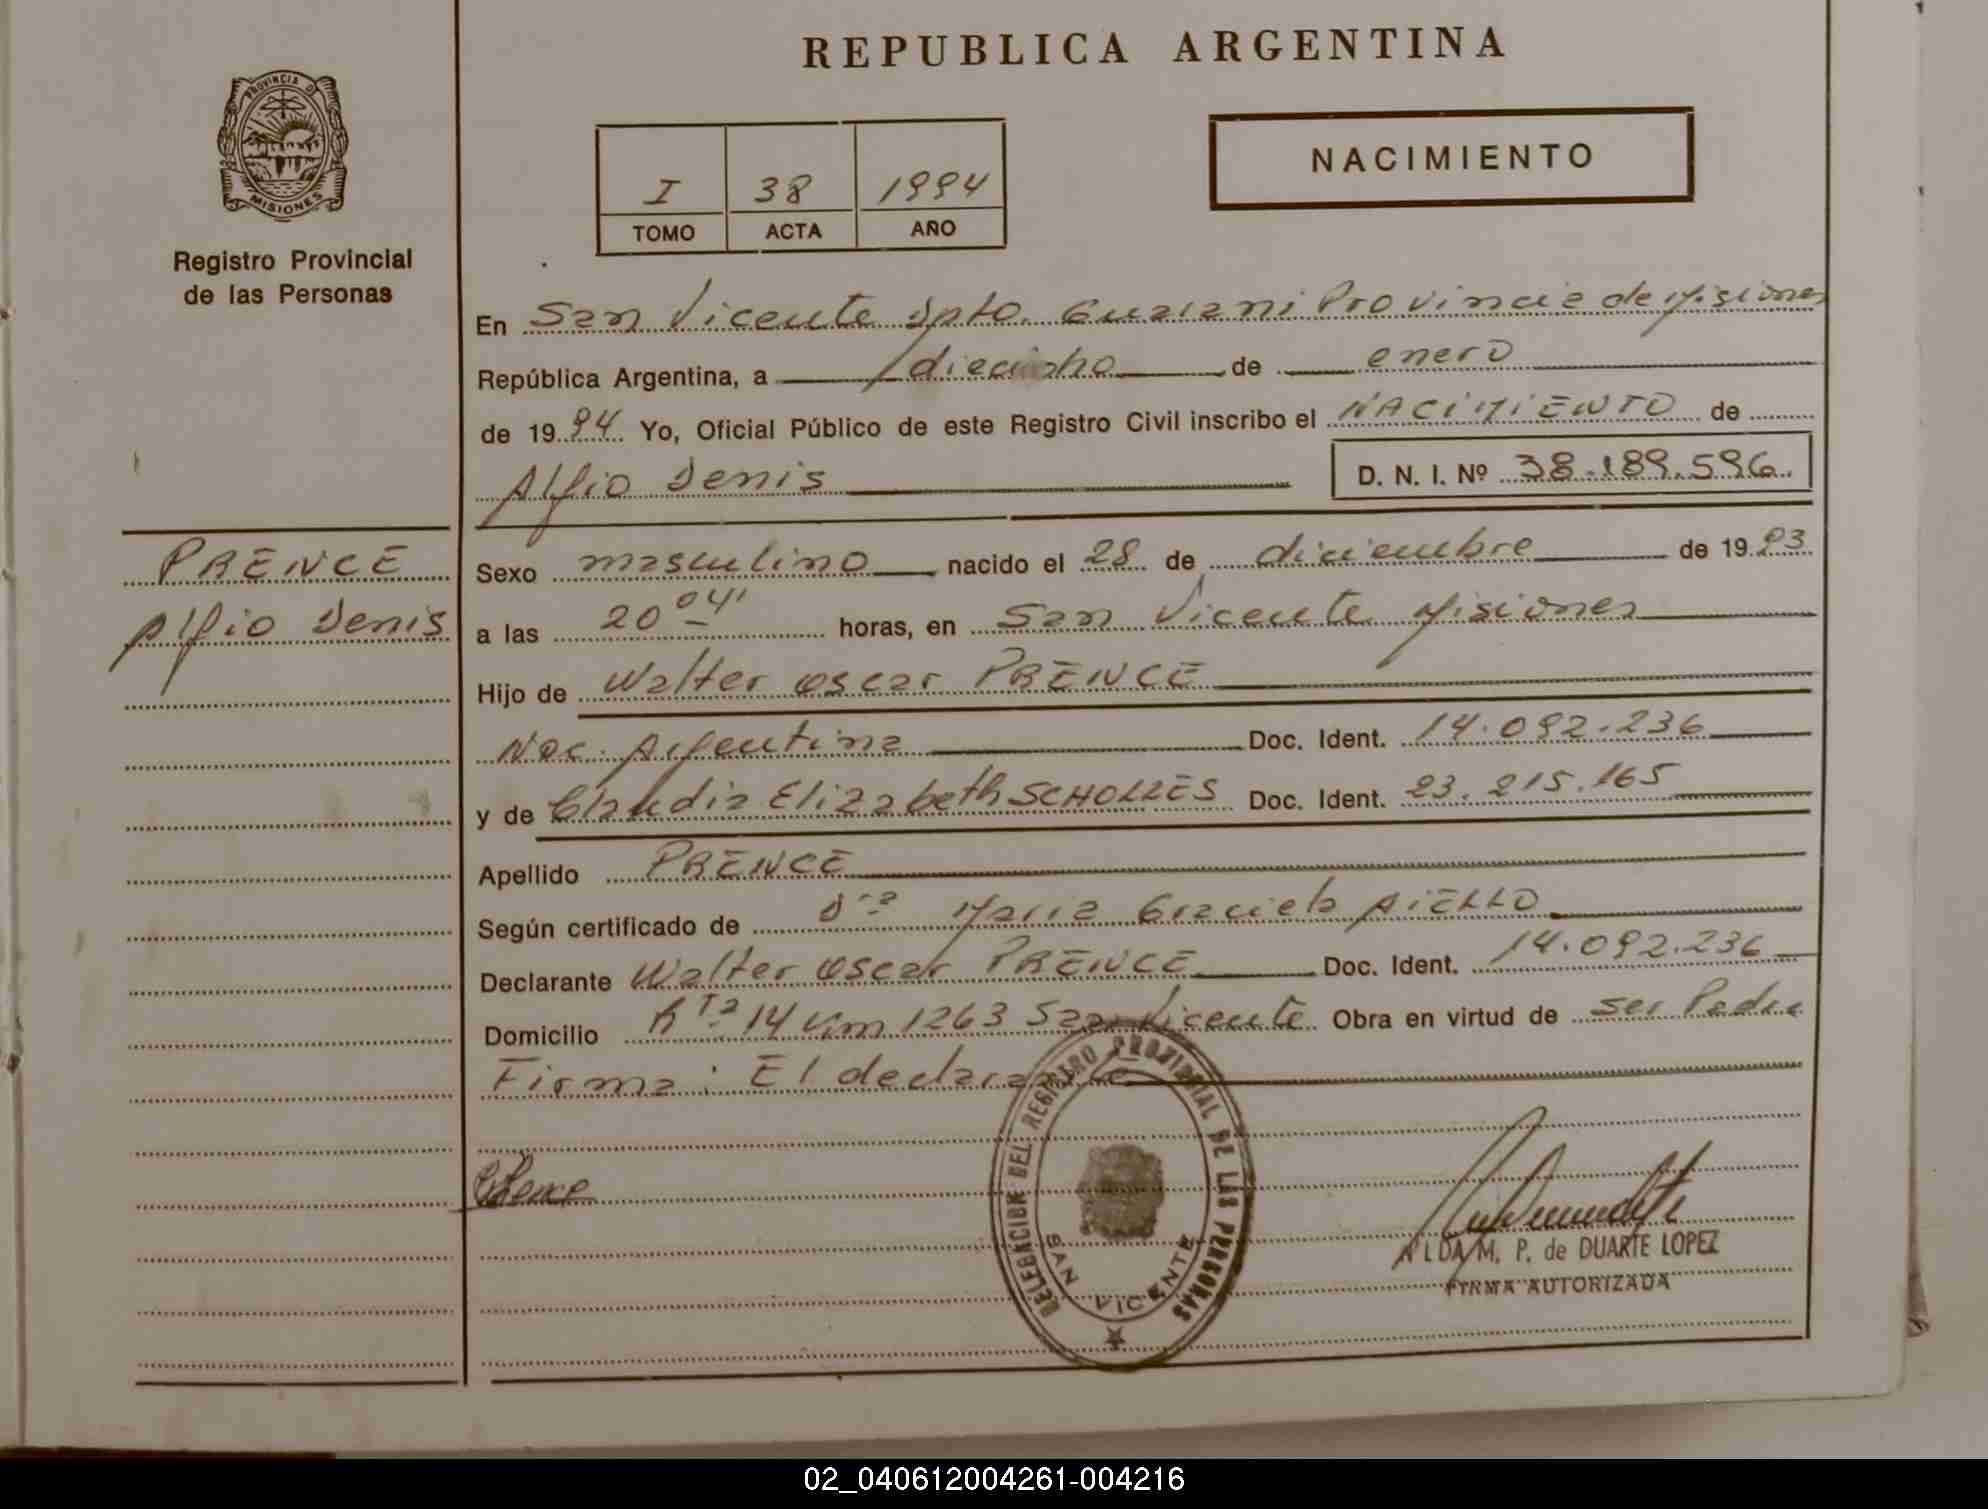 REPUBLICA ARGENTINA
PROVINCIA DE
MISIONES
Registro Provincial
de las Personas
I 38 1994
TOMO ACTA AÑO
NACIMIENTO
En San Vicente Dpto. Guarani Provincia de Misiones
República Argentina, a dieciocho de enero
de 1994 Yo, Oficial Público de este Registro Civil inscribo el NACIMIENTO de
Alfio Denis D. N. I. Nº 38.189.596.
PRENCE
Alfio Denis
Sexo masculino nacido el 28 de diciembre de 1993
a las 20 04' horas, en San Vicente Misiones
Hijo de Walter Oscar PRENCE
Nac. Argentina Doc. Ident. 14.092.236
y de Claudia Elizabeth SCHOLLES Doc. Ident. 23.215.165
Apellido PRENCE
Según certificado de Dra Maria Graciela AIELLO
Declarante Walter Oscar PRENCE Doc. Ident. 14.092.236
Domicilio Rta 14 Km 1263 San Vicente Obra en virtud de ser Padre
Firma: El declarante
DELEGACION DEL REGISTRO PROVINCIAL DE LAS PERSONAS
SAN VICENTE
ALDA M. P. de DUARTE LOPEZ
FIRMA AUTORIZADA
02_040612004261-004216